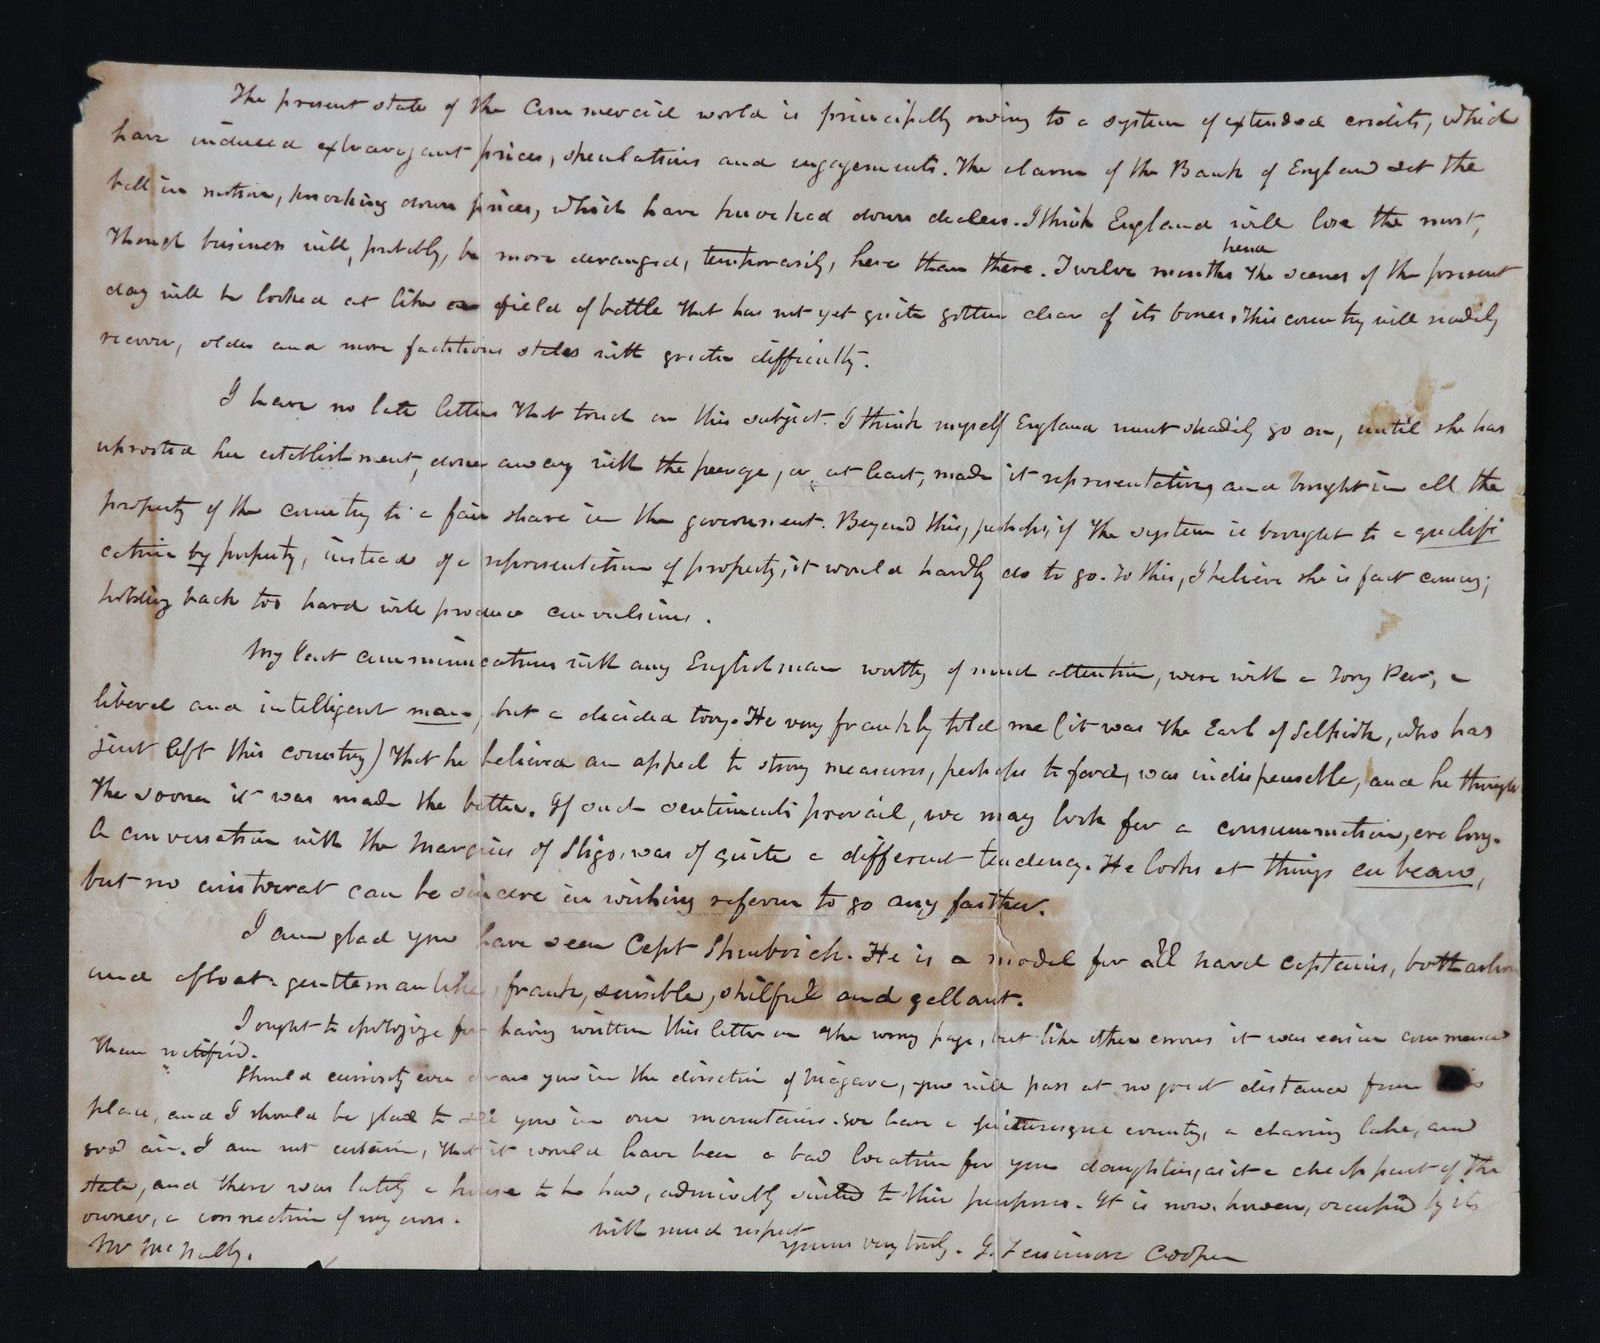 The present state of the commercial world is principally owing to a system of extended credits, which
have induced extravagant prices, speculations and engagements. The alarm of the Bank of England set the
ball in motion, knocking down prices, which have knocked down dealers. I think England will lose the most,
though business will, probably, be more deranged, temporarily, here than there. Twelve months hence the scenes of the present
day will be looked at like a field of battle that has not yet quite gotten clear of its bones. This country will readily
recover, older and more factitious states with greater difficulty.
I have no late letters that touch on this subject. I think myself England must steadily go on, until she has
uprooted her establishment, done away with the peerage, or at least, made it representative, and brought in all the
property of the country to a fair share in the government. Beyond this, perhaps, if the system is brought to a qualifi
cation by property, instead of a representation of property, it would hardly do to go. To this, I believe she is fast coming;
holding back too hard will produce convulsions.
My last communications with any Englishman worthy of much attention, were with a Tory Peer, a
liberal and intelligent man, but a decided tory. He very frankly told me (it was the Earl of Selkirk, who has
just left this country) that he believed an appeal to strong measures, perhaps to force, was indispensable, and he thought
the sooner it was made the better. If such sentiments prevail, we may look for a consummation, ere long.
A conversation with the Marquis of Sligo, was of quite a different tendency. He looks at things en beau,
but no aristocrat can be sincere in wishing reform to go any farther.
I am glad you have seen Capt Shubrick. He is a model for all naval captains, both ashore
and afloat: gentlemanlike, frank, sensible, skilful and gallant.
I ought to apologize for having written this letter on the wrong page, but like other errors it was easier commenced
than rectified.
Should curiosity ever draw you in the direction of Niagara, you will pass at no great distance from this
place, and I should be glad to see you in our mountains. We have a picturesque county, a charming lake, and
good air. I am not certain, that it would have been a bad location for your daughters, as it a cheap part of the
state, and there was lately a house to be had, admirably suited to their purposes. It is now, however, occupied by its
owner, a connection of my own.
with much respect
yours very truly. J. Fenimore Cooper
Mr McNally.